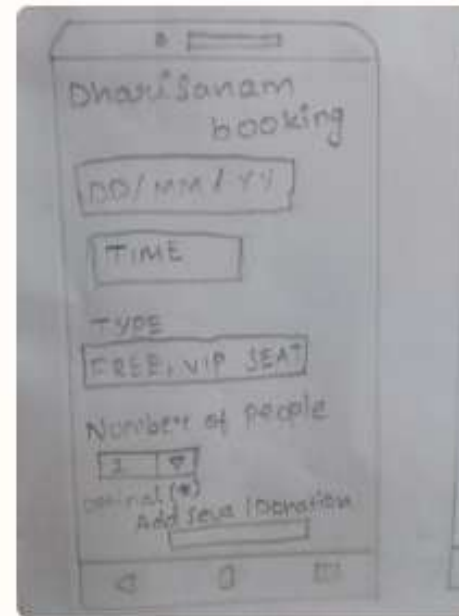 Dharisanam
booking
DD/MM/YY
TIME
TYPE
FREE, VIP SEAT
Number of people
Add Seva/Donation